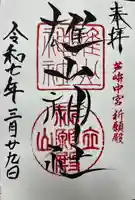 奉拝
芦峅中宮 祈願殿
雄山神社
令和七年 三月廿九日